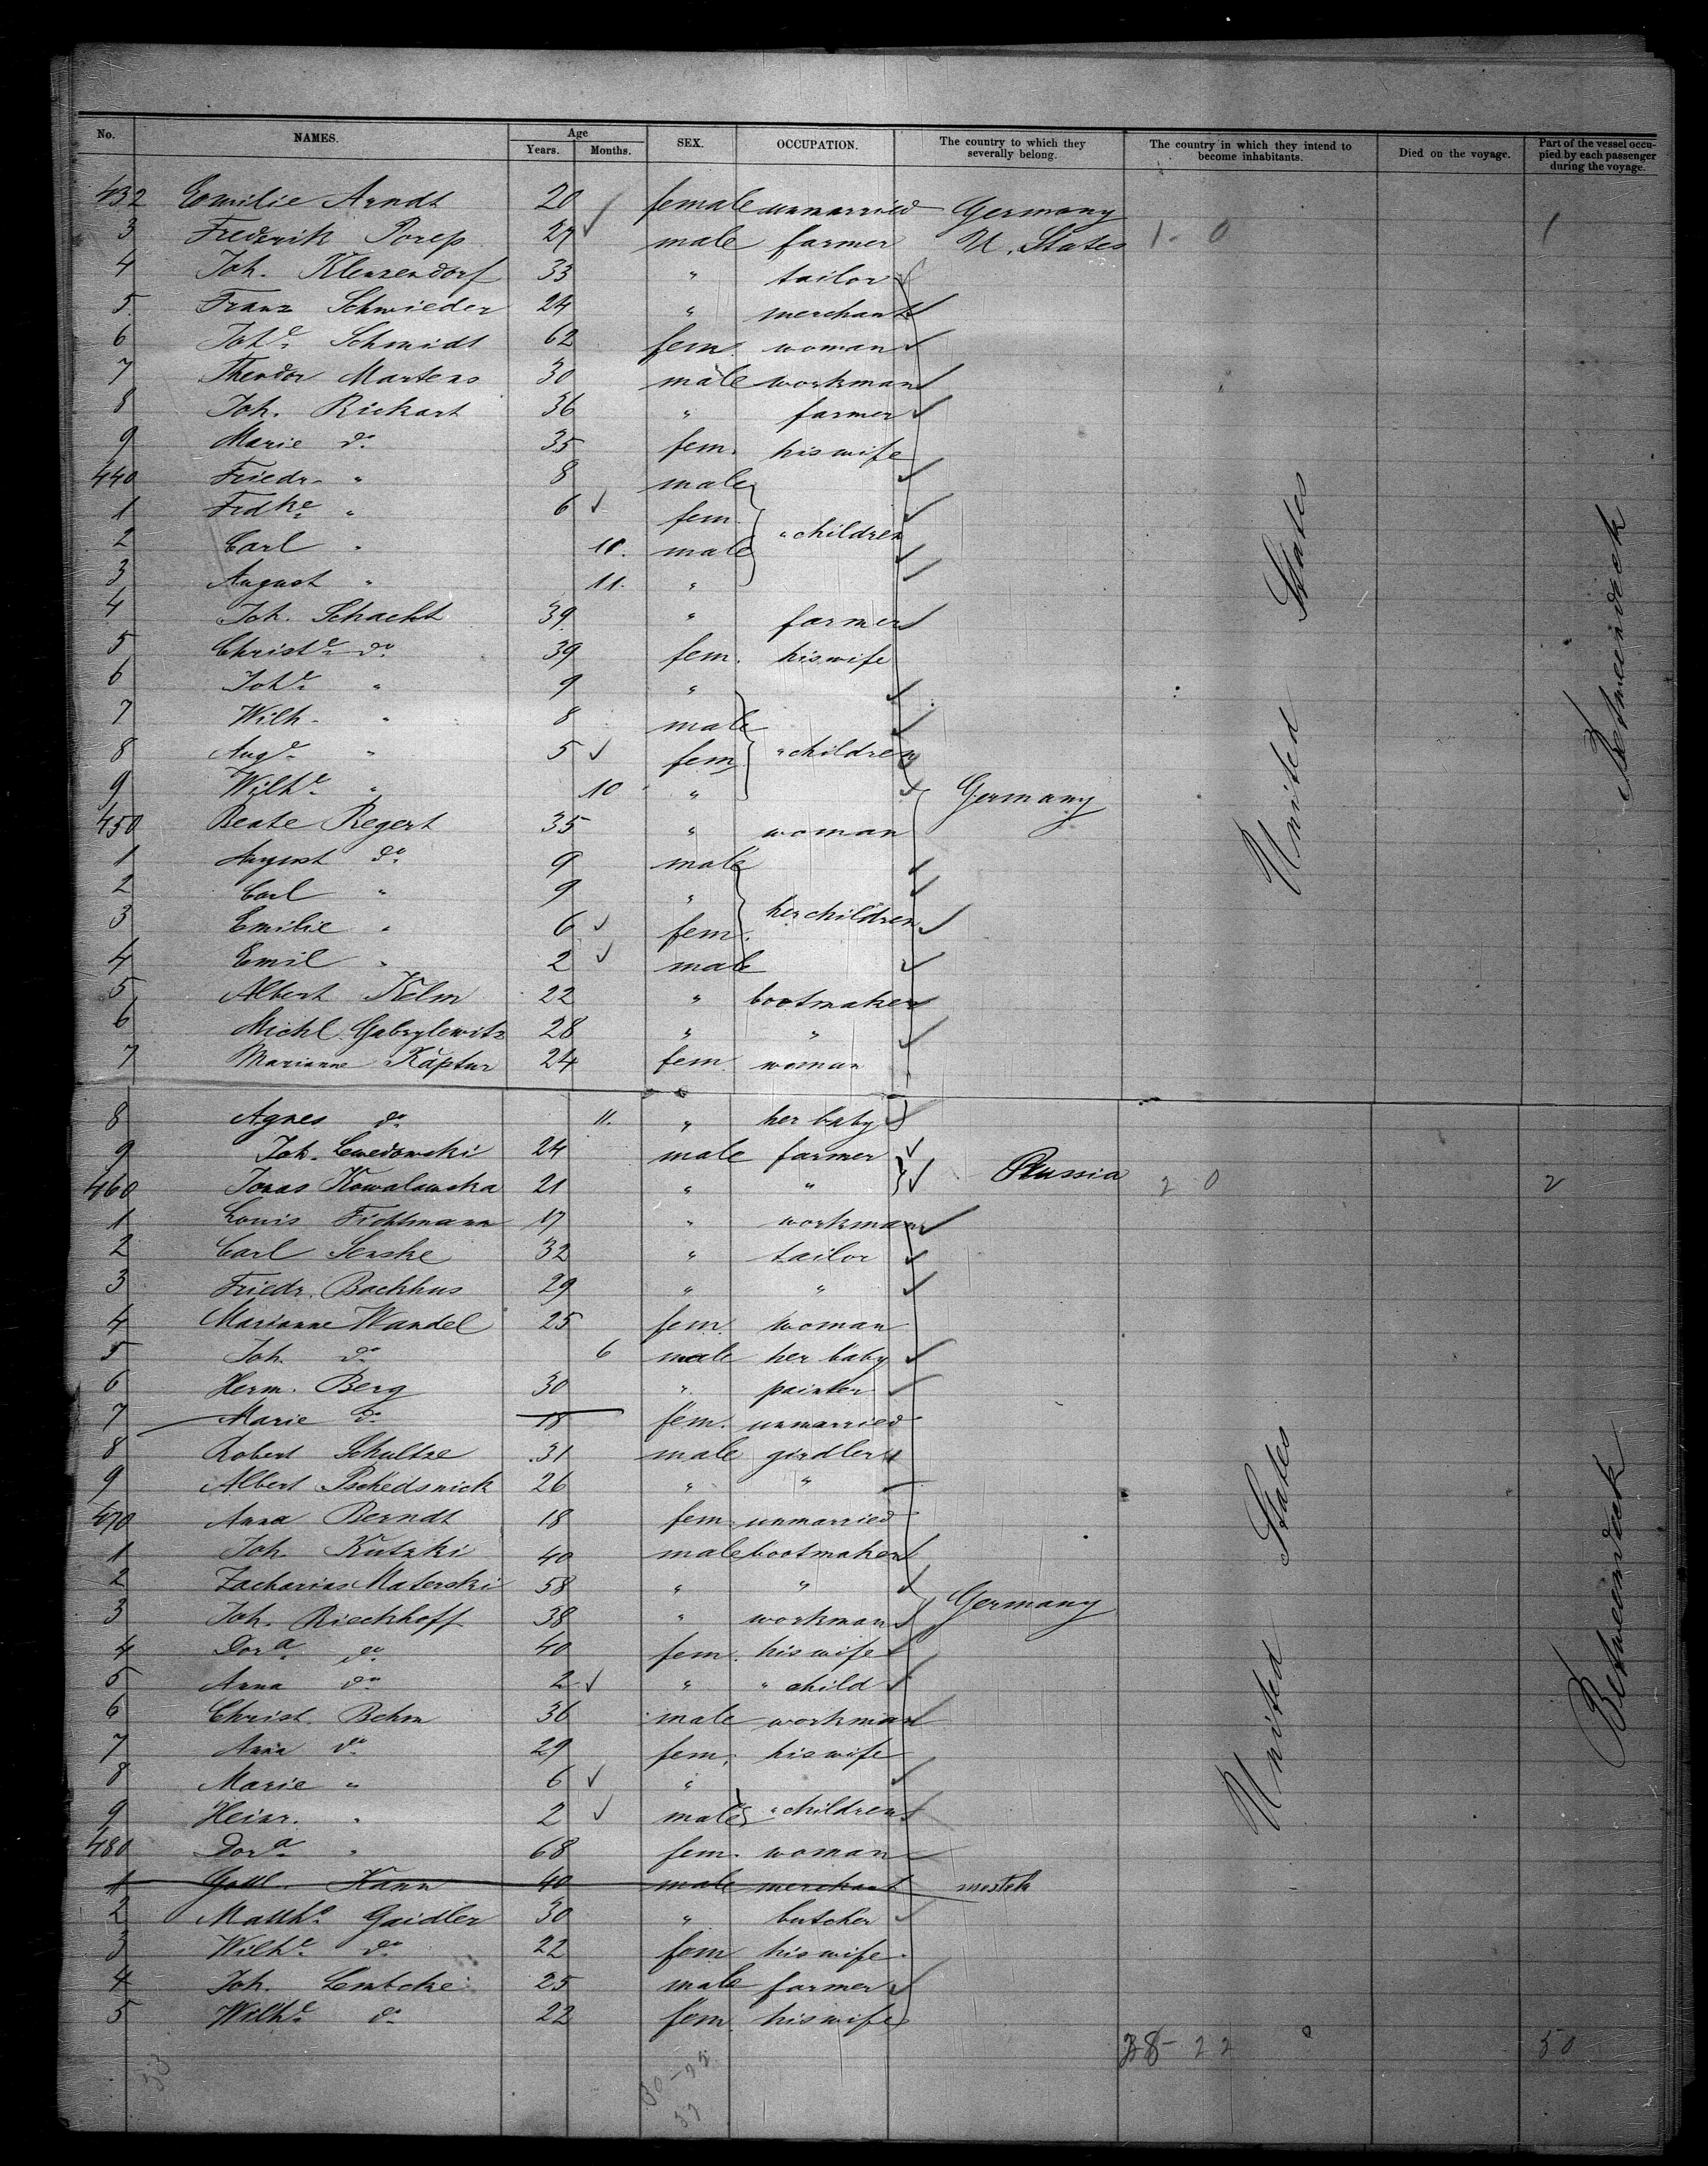 No. NAMES. Age Years. Months. SEX. OCCUPATION. The country to which they severally belong. The country in which they intend to become inhabitants. Died on the voyage. Part of the vessel occupied by each passenger during the voyage.
432 Emilie Arndt 20 female unmarried Germany
3 Frederik Porep 27 male farmer U. States 1 - 0 1
4 Joh. Klenzendorf 33 " tailor
5 Franz Schmieder 24 " merchant
6 Johe. Schmidt 62 fem. woman
7 Theodor Martens 30 male workman
8 Joh. Rickart 36 " farmer
9 Marie do. 35 fem. his wife
440 Friedr. " 8 male
1 Frdke. " 6 fem. " children
2 Carl " 11. male
3 August " 11. "
4 Joh. Schacht 39. " farmer
5 Christe. do. 39 fem. his wife
6 Johe. " 9 "
7 Wilh. " 8 male
8 Auge. " 5 fem. " children
9 Wilhe. " 10 " Germany
450 Beate Regert 35 " woman
1 August do. 9 male
2 Carl " 9 "
3 Emilie " 6 fem. her children
4 Emil " 2 male
5 Albert Kelm 22 " bootmaker
6 Michl. Gabrylewitz 28 " "
7 Marianne Kaptur 24 fem. woman
8 Agnes do. 11. " her baby
9 Joh. 24 male farmer
460 Jonas Kowalawska 21 " " Russia 2 0 2
1 Louis Fichtmann 17 " workman
2 Carl Senske 32 " tailor
3 Friedr. Backhus 29 " "
4 Marianne Wandel 25 fem. woman
5 Joh. do. 6 male her baby
6 Herm. Berg 30 " painter
7 Marie do. 18 fem. unmarried
8 Robert Schultze 31 male girdler
9 Albert Pschedsnick 26 " "
470 Anna Berndt 18 fem. unmarried
1 Joh. Kutzki 40 male bootmaker
2 Zacharias Materski 58 " "
3 Joh. Riechhoff 38 " workman Germany
4 Dora. do. 40 fem. his wife
5 Anna do. 2 " " child
6 Christ. Behm 36 male workman
7 Anna do. 29 fem. his wife
8 Marie " 6 "
9 Heinr. " 2 male " children
480 Dora. " 68 fem. woman
1 Gottl. Kann 40 male merchant
2 Matth. Gaidler 30 " butcher
3 Wilhe. do. 22 fem. his wife
4 Joh. Lembcke 25 male farmer
5 Wilhe. do. 22 fem. his wife
United States
Betweendeck
United States
Betweendeck
28 - 22 0 50